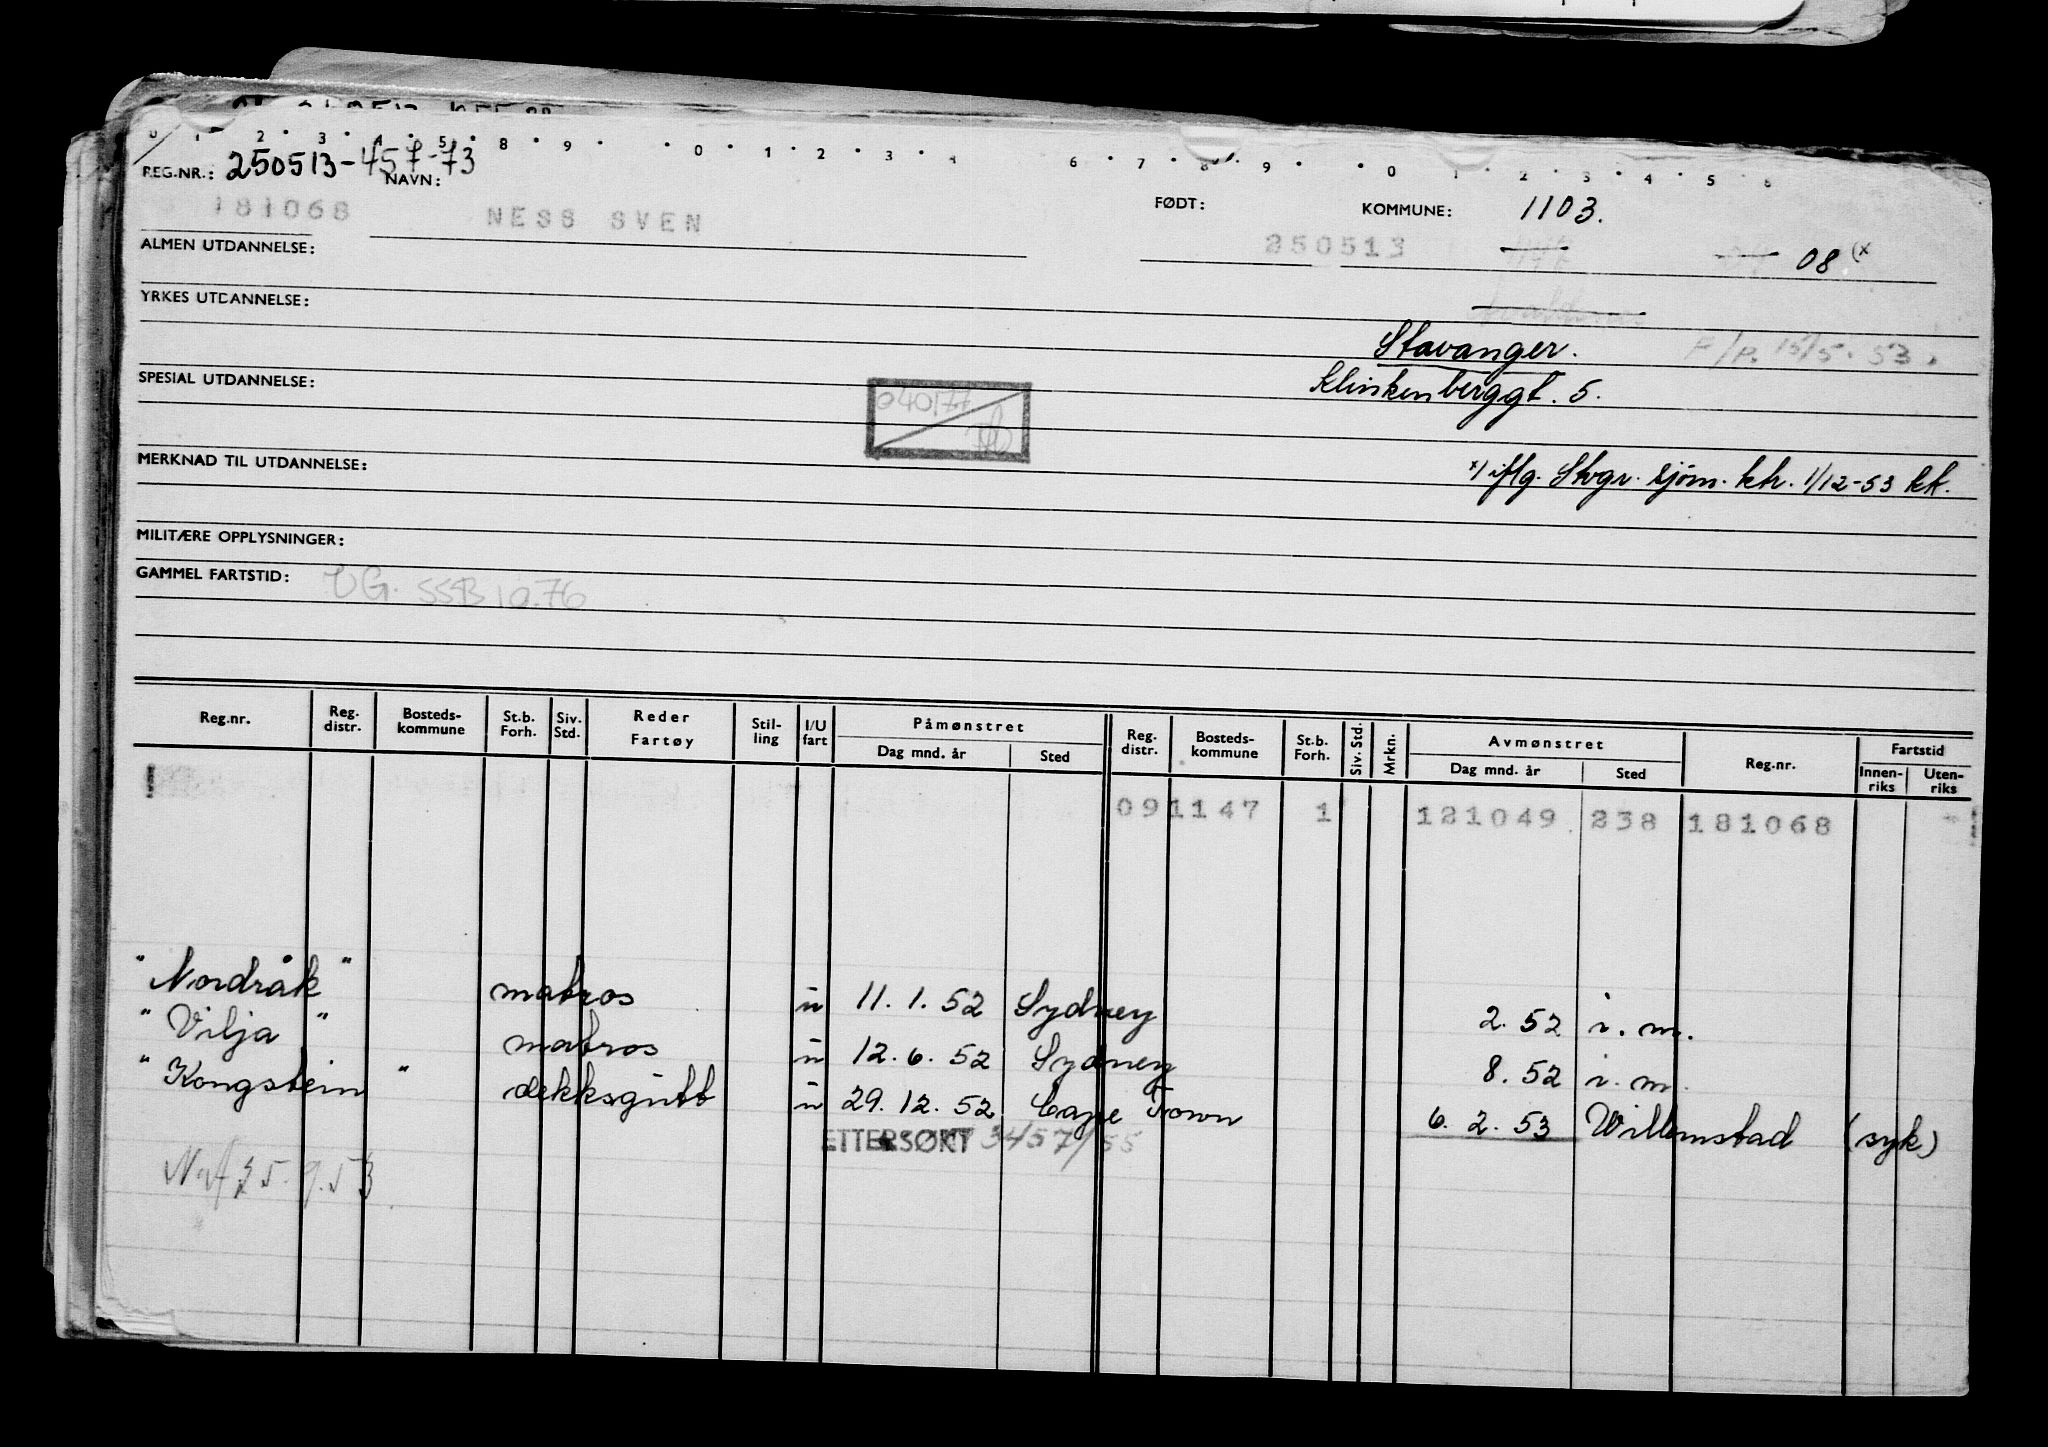 0 1 2 3 4 5 8 9 0 1 2 3 4 6 7 8 9 0 1 2 3 4 5 6
REG.NR.: 250513-457-73 NAVN: FØDT: KOMMUNE: 1103.
181068 NESS SVEN 250513 08 (x
ALMEN UTDANNELSE:
YRKES UTDANNELSE:
Stavanger. F/P. 15/5. 53.
SPESIAL UTDANNELSE: 040177 Klinkenberggt. 5.
MERKNAD TIL UTDANNELSE: x) iflg. Stvgr. sjøm. ktr. 1/12-53 kk.
MILITÆRE OPPLYSNINGER:
GAMMEL FARTSTID: UG. SSB 10.76
Reg.nr. Reg. distr. Bosteds-kommune St.b. Forh. Siv. Std. Reder Fartøy Stil-ling I/U fart Påmønstret Dag mnd. år Sted Reg. distr. Bosteds-kommune St.b. Forh. Siv. Std. Mrkn. Avmønstret Dag mnd. år Sted Reg.nr. Fartstid Innen-riks Uten-riks
091147 1 121049 238 181068
"Nordråk" matros u 11. 1. 52 Sydney 2. 52 i. m.
"Vilja" matros u 12. 6. 52 Sydney 8. 52 i. m.
"Kongstein" dekksgutt u 29. 12. 52 Cape Town 6. 2. 53 Willemstad (syk)
ETTERSØKT 3457/55